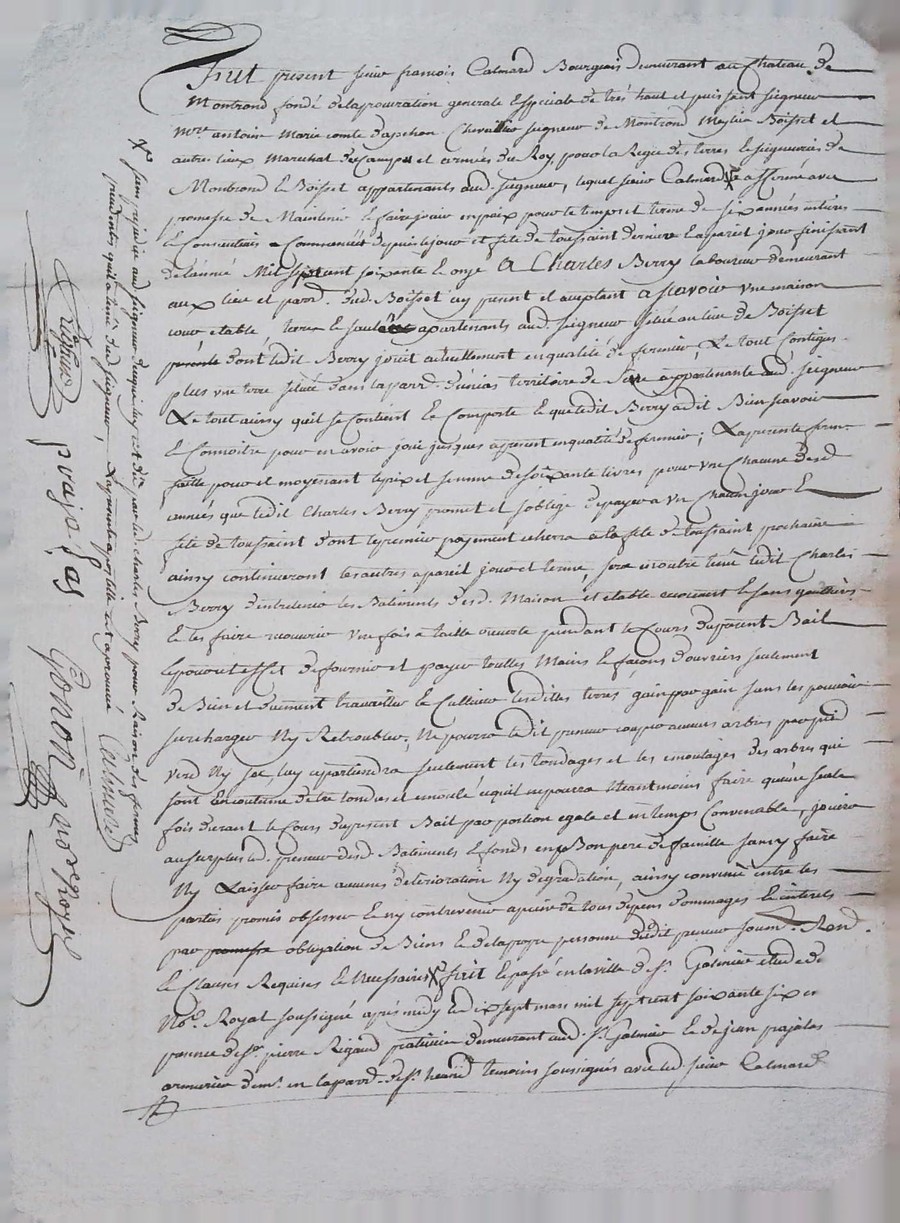 Fut present sieur francois Calmard Bourgeois demeurant au Chateau de
Montrond fondé de la procuration generale & speciale de tres haut et puissant seigneur
mre antoine Marie comte Dapchon Chevallier seigneur de Montrond Meylieu Boisset et
autres lieux Marechal des Camps et armées du Roy pour la Regie des terres & seigneuries de
Montrond & Boisset appartenants aud. seigneur, lequel sieur Calmard a affermé avec
promesse de Maintenir & faire jouir en paix pour le temps et terme de six années entieres
& Consecutives a Commencer depuis le jour et fete de toussaint derniere & a pareil jour finissant
de l'année Mil sept cent soixante & onze A Charles Berry laboureur demeurant
aux lieu et parr. dud. Boisset icy present et acceptant a scavoir vne maison
cour etable terre & appartenants aud. seigneur située au lieu de Boisset
dont ledit Berry jouit actuellement en qualité de fermier, Le tout Contigus
plus vne terre située dans la parr. territoire de appartenante aud. seigneur
Le tout ainsy quil se Contient & Comporte & que ledit Berry a dit Bien scavoir
& Connoitre pour en avoir joui jusques a present en qualité de fermier; La presente ferme
faitte pour et moyenant le prix et somme de soixante livres pour vne Chacune desd.
années que ledit Charles Berry promet et s'oblige de payer a vn Chacun jour &
fete de toussaint dont le premier payement echerra a la fete de toussaint prochaine
ainsy continueront les autres a pareil jour et terme, sera en outre tenu ledit Charles
Berry d'entretenir les Batiments desd. Maison et etable & sans gouttieres
& les faire recouvrir vne fois a taille ouverte pendant le Cours du present Bail
& pour cet effet de fournir et payer touttes Mains & facons d'ouvriers seulement
de Bien et duement travailler & Cultiver lesdittes terres gain par gain sans les pouvoir
surcharger Ny Retroubler, Ne pourra ledit preneur couper aucuns arbres par pied
verd Ny sec, luy appartiendra seulement les tondages et les emondages des arbres qui
sont en coutume detre tondus et emondé cequil ne pourra Neantmoins faire qu'une seule
fois durant le Cours du present Bail par portion egale et en temps Convenable, jouira
au surplus led. preneur desd. Batiments & fonds en Bon pere de famille sans y faire
Ny Laisser faire aucunes deterioration Ny degradation, ainsy convenu entre les
parties promis observer & ny contrevenir a peine de tous depens dommages & interets
par promesse obligation de Biens & de la propre personne dudit preneur soum. Ren.
& Clauses Requises & Necessaires fait & passé en la ville de St. Galmier etude de
No.re Royal soussigné après midy le dix sept mars mil sept cent soixante six en
presence de Sr. pierre Rigaud praticien demeurant aud. St. Galmier & de jean prajalas
armurier dem.t en la parr. de St. heand temoins soussignés avec led. sieur Calmard
sans prejudice aud. seigneur de ce qui luy est dû par led. charles Berry pour Raison des fermes
precedentes quil a tenu dud. seigneur, Calmard
Rigaud
prajalas
Gonon